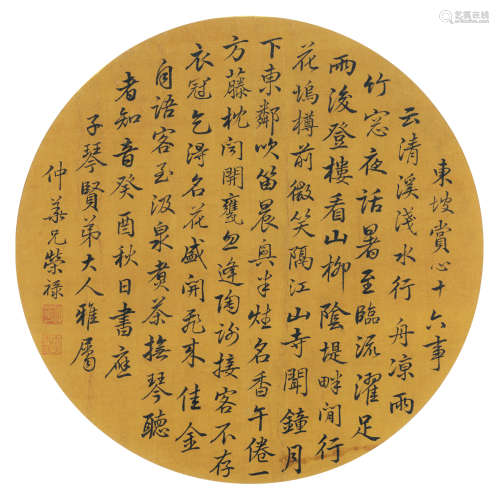 東坡賞心十六事
云清溪淺水行舟涼雨
竹窓夜話暑至臨流濯足
雨後登樓看山柳陰堤畔閒行
花塢樽前微笑隔江山寺聞鐘月
下東鄰吹笛晨興半炷名香午倦一
方藤枕開甕忽逢陶謝接客不存
衣冠乞得名花盛開飛來佳金
自語客至汲泉煮茶撫琴聽
者知音癸酉秋日書應
子琴賢弟大人雅屬
仲華兄榮祿